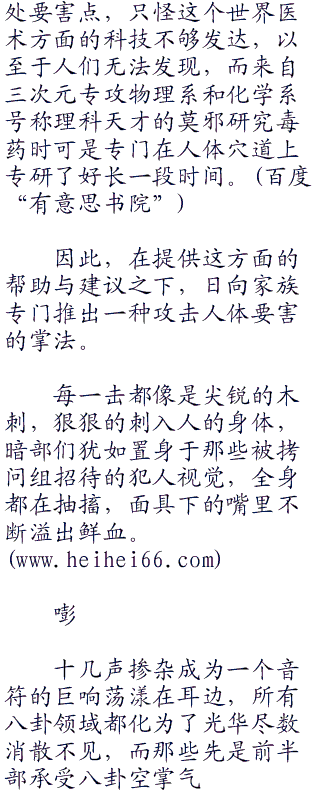 处要害点，只怪这个世界医
术方面的科技不够发达，以
至于人们无法发现，而来自
三次元专攻物理系和化学系
号称理科天才的莫邪研究毒
药时可是专门在人体穴道上
专研了好长一段时间。(百度
“有意思书院”)
因此，在提供这方面的
帮助与建议之下，日向家族
专门推出一种攻击人体要害
的掌法。
每一击都像是尖锐的木
刺，狠狠的刺入人的身体，
暗部们犹如置身于那些被拷
问组招待的犯人视觉，全身
都在抽搐，面具下的嘴里不
断溢出鲜血。
(www.heihei66.com)
嘭
十几声掺杂成为一个音
符的巨响荡漾在耳边，所有
八卦领域都化为了光华尽数
消散不见，而那些先是前半
部承受八卦空掌气